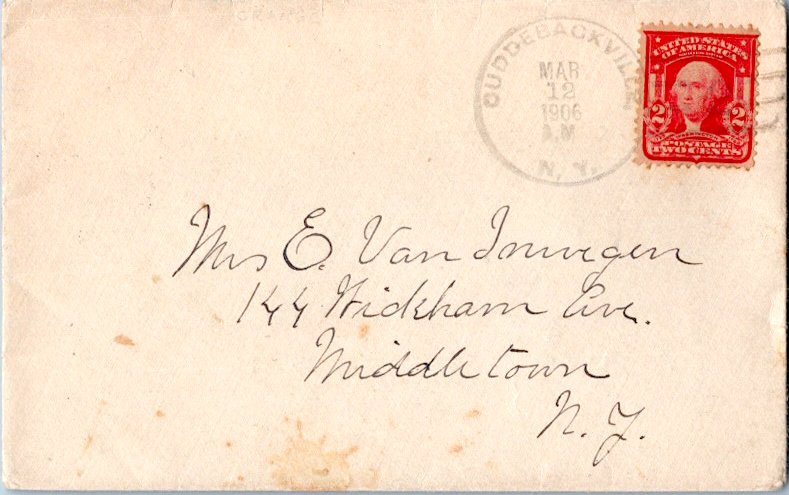 ORANGE
CUDDEBACKVILLE
MAR
12
1906
A.M.
N. Y.
UNITED STATES
OF AMERICA
2 2
WASHINGTON
POSTAGE
TWO CENTS
Mrs E. Van Inwegen
144 Wickham Ave.
Middletown
N. Y.